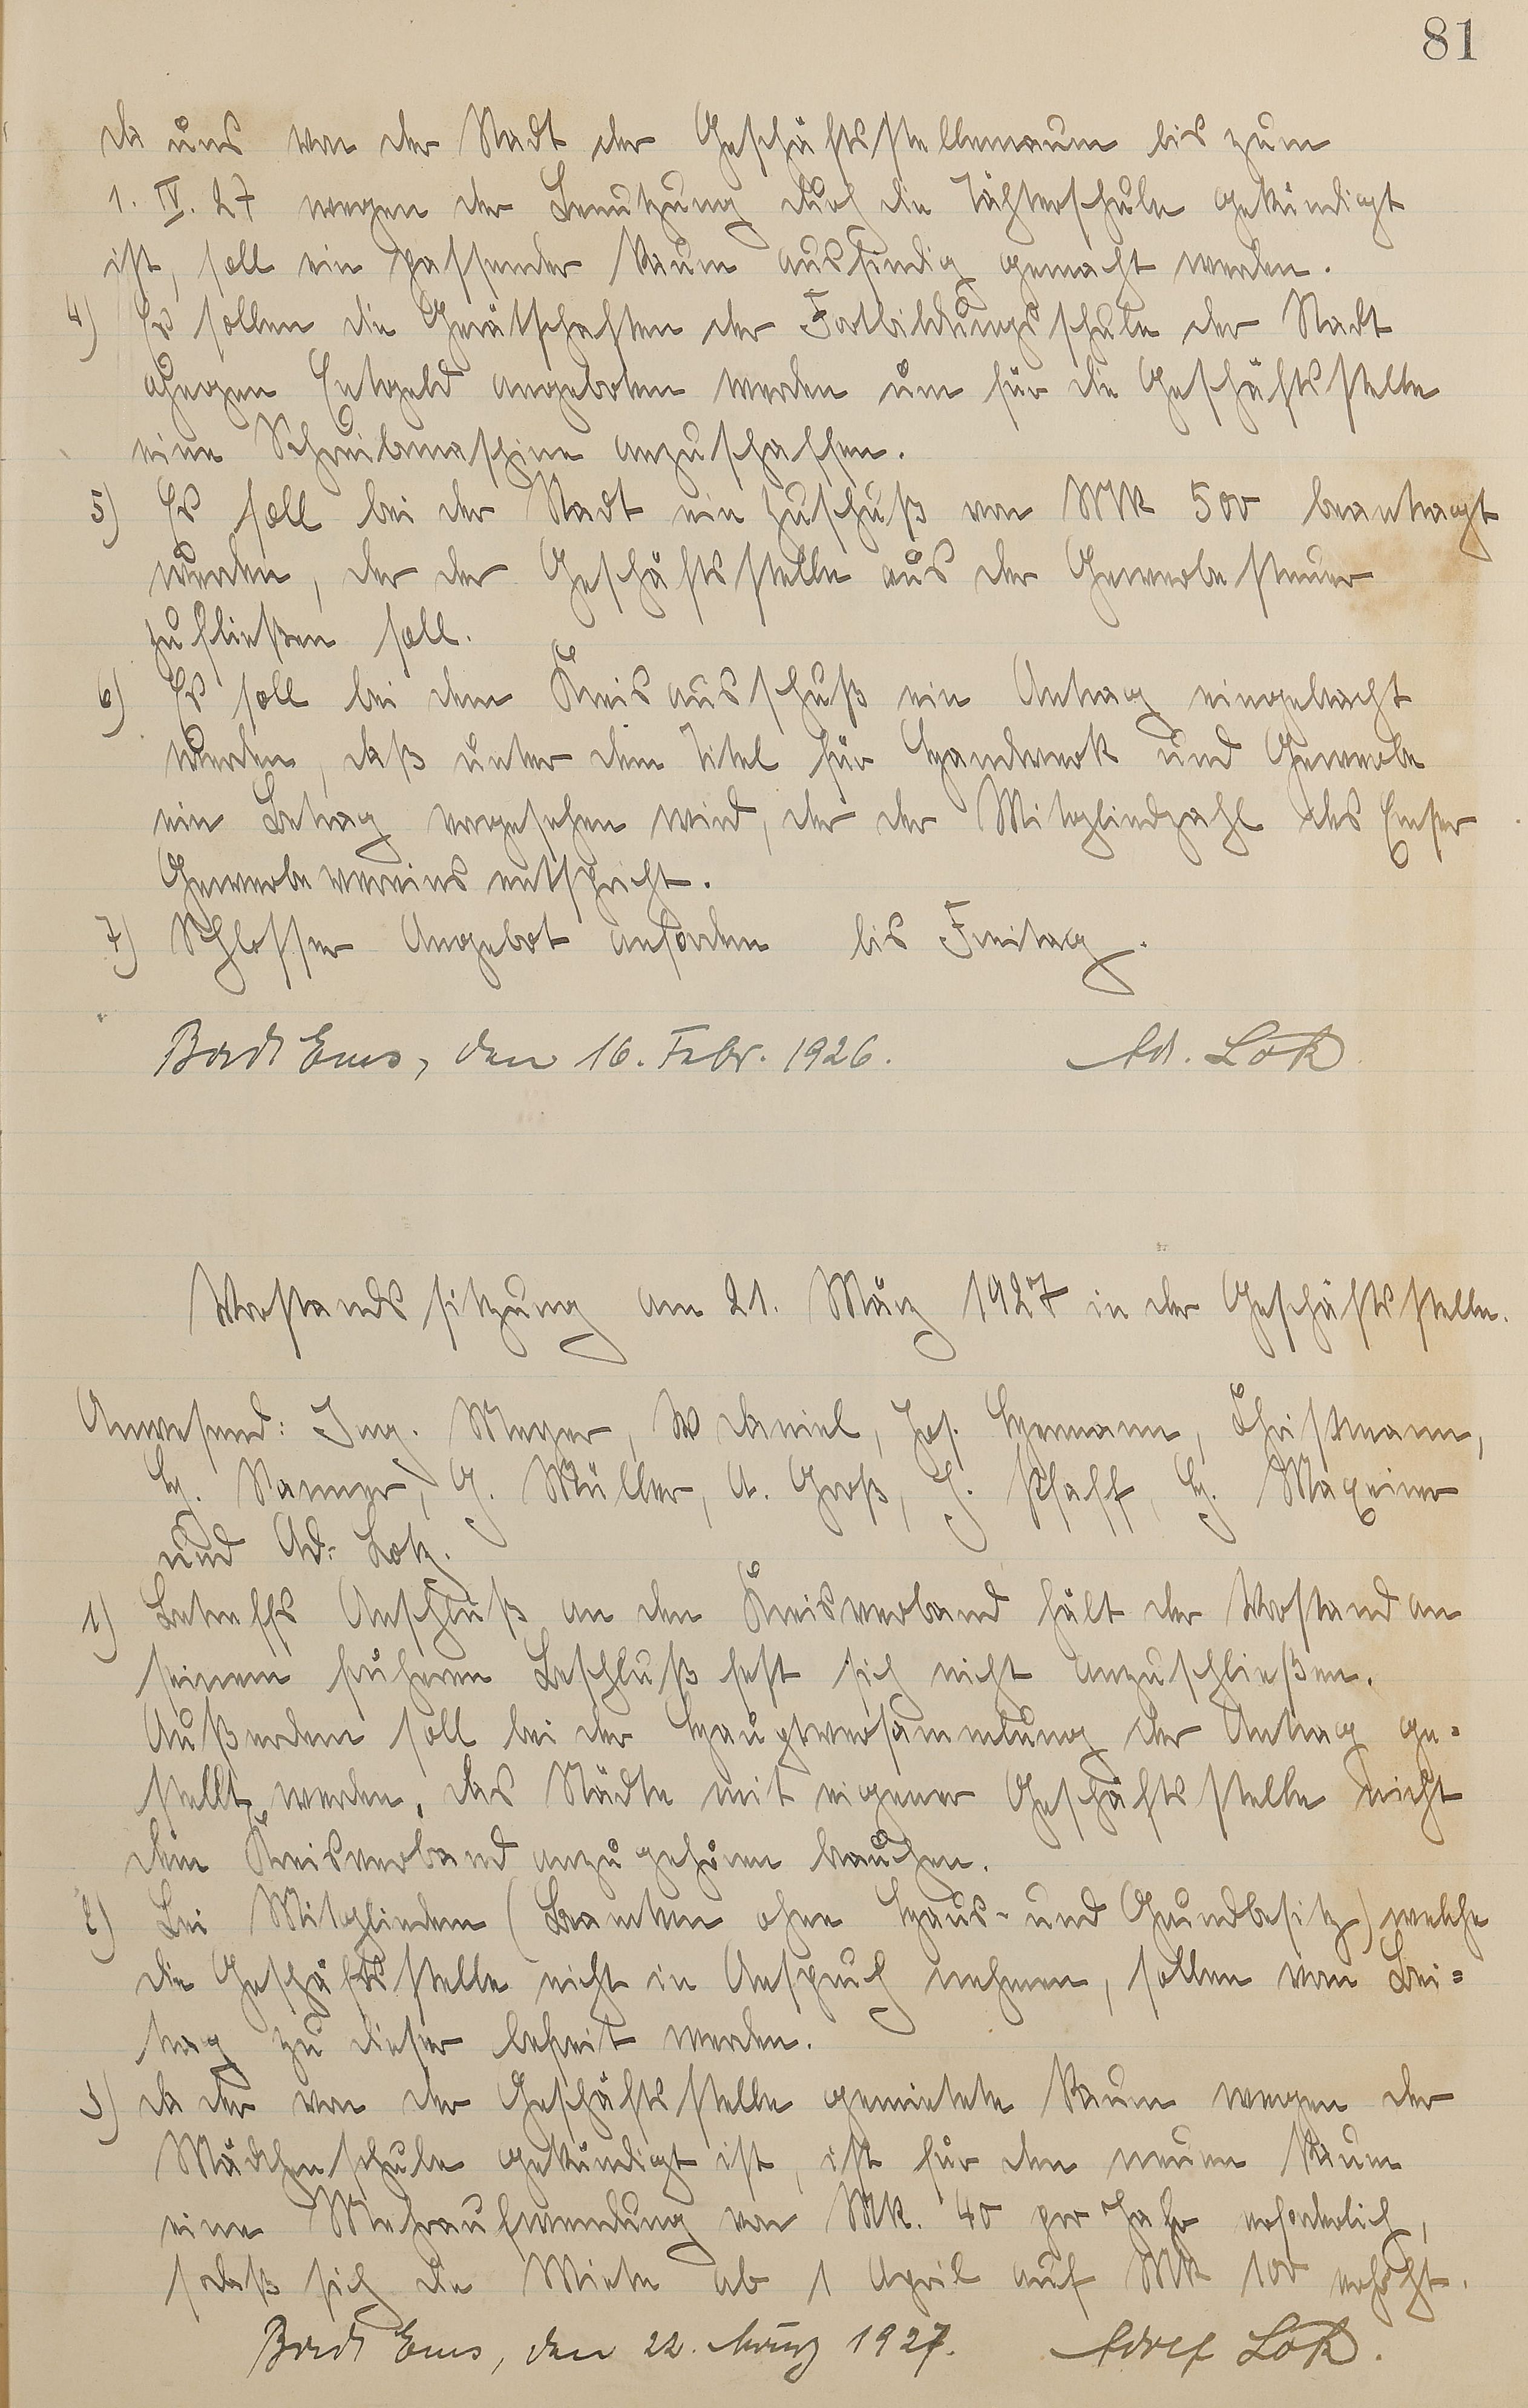 81
da uns von der Stadt der Geschäftsstellenraum bis zum
1. IV. 27 wegen der Benutzung durch die Töchterschule gekündigt
ist, soll ein passender Raum ausfindig gemacht werden.
4) Es sollen die Gerätschaften der Fortbildungsschule der Stadt
gegen Entgeld angeboten werden um für die Geschäftsstelle
eine Schreibmaschine anzuschaffen.
5) Es soll bei der Stadt ein Zuschuß von Mk 500 beantragt
werden, der der Geschäftsstelle aus der Gewerbesteuer
zufließen soll.
6) Es soll bei dem Kreisausschuß ein Antrag eingebracht
werden, daß unter dem Titel für Handwerk und Gewerbe
ein Betrag vorgesehen wird, der der Mitgliedzahl des Emser
Gewerbevereins entspricht.
7) Schlosser Angebot anfordern bis Freitag.
Bad Ems, den 16. Febr. 1926. Ad. Lotz
Vorstandssitzung am 21. März 1927 in der Geschäftsstelle.
Anwesend: Ing. Meyer, W Daniel, Jos. Hermann, Christmann,
H. Sanner, G. Müller, A. Groß, J. Pfaff, H. Maxeiner
und Ad. Lotz.
1) Betreffs Anschluß an den Kreisverband hält der Vorstand an
seinem früheren Beschluß fest sich nicht anzuschließen.
Außerdem soll bei der Hauptversammlung der Antrag ge=
stellt werden, das Städte mit eigener Geschäftsstelle nicht
dem Kreisverband anzugehören brauchen.
2) Bei Mitgliedern (Beamten ohne Haus- und Grundbesitz) welche
die Geschäftsstelle nicht in Anspruch nehmen, sollen vom Bei=
trag zu dieser befreit werden.
3) Da der von der Geschäftsstelle gemietete Raum wegen der
Mädchenschule gekündigt ist, ist für den neuen Raum
eine Mehraufwendung von Mk. 40 pro Jahr erforderlich,
sodaß sich die Miete ab 1 April auf Mk 100 erhöht.
Bad Ems, den 22. März 1927. Adolf Lotz.